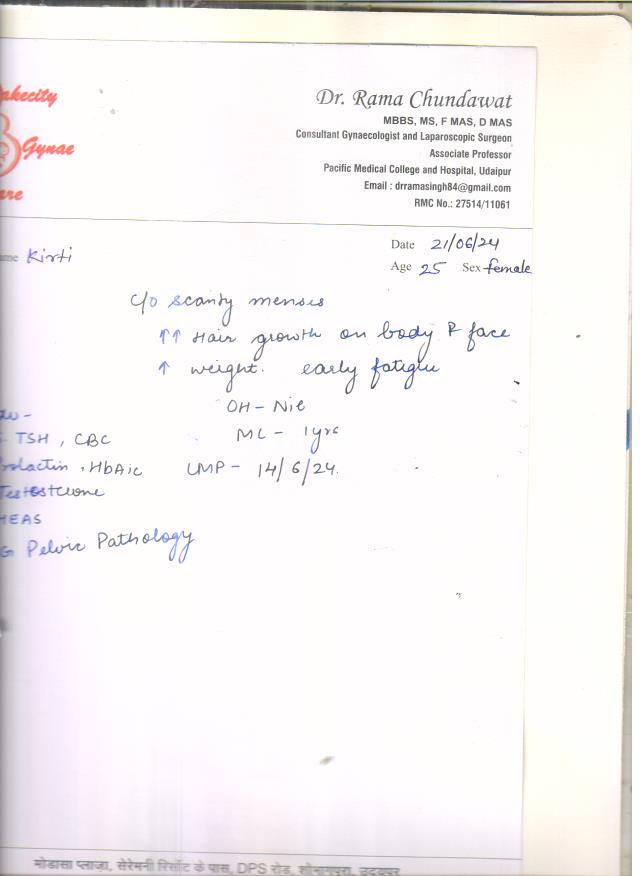 akecity
Gynae
are
Dr. Rama Chundawat
MBBS, MS, F MAS, D MAS
Consultant Gynaecologist and Laparoscopic Surgeon
Associate Professor
Pacific Medical College and Hospital, Udaipur
Email : drramasingh84@gmail.com
RMC No.: 27514/11061
me Kirti
Date 21/06/24
Age 25 Sex female
c/o scanty menses
↑↑ Hair growth on body & face
↑ weight. early fatigue
OH - Nil
ML - 1yrs
LMP - 14/6/24.
TSH, CBC
rolactin, HbA1c
Testosterone
HEAS
G Pelvic Pathology
मोडासा प्लाज़ा, सेरेमनी रिसोर्ट के पास, DPS रोड, शोभागपुरा, उदयपुर